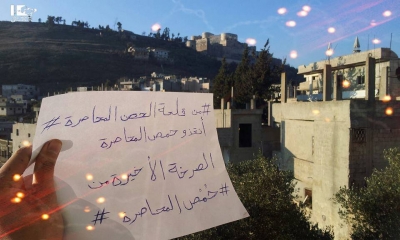 #من قلعة الحصن المحاصرة#
أنقذو حمص المحاصرة
الصرخة الأخيرة من
#حمص المحاصره#